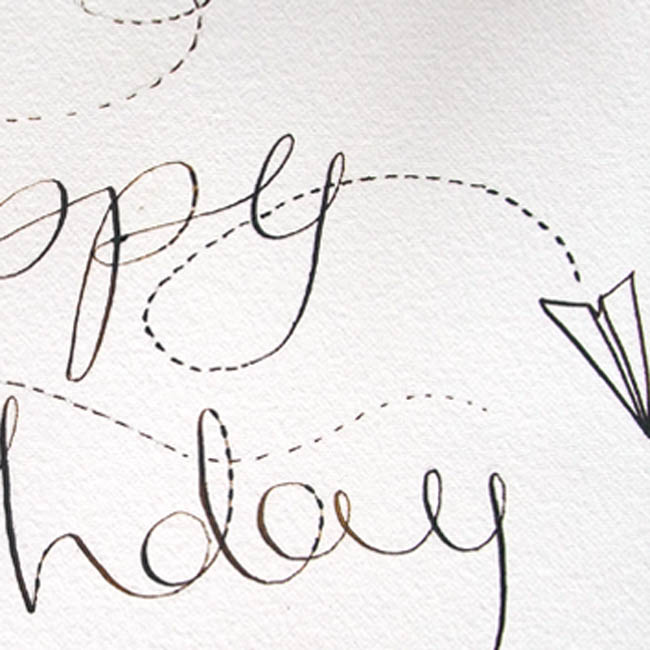 ppy
hday